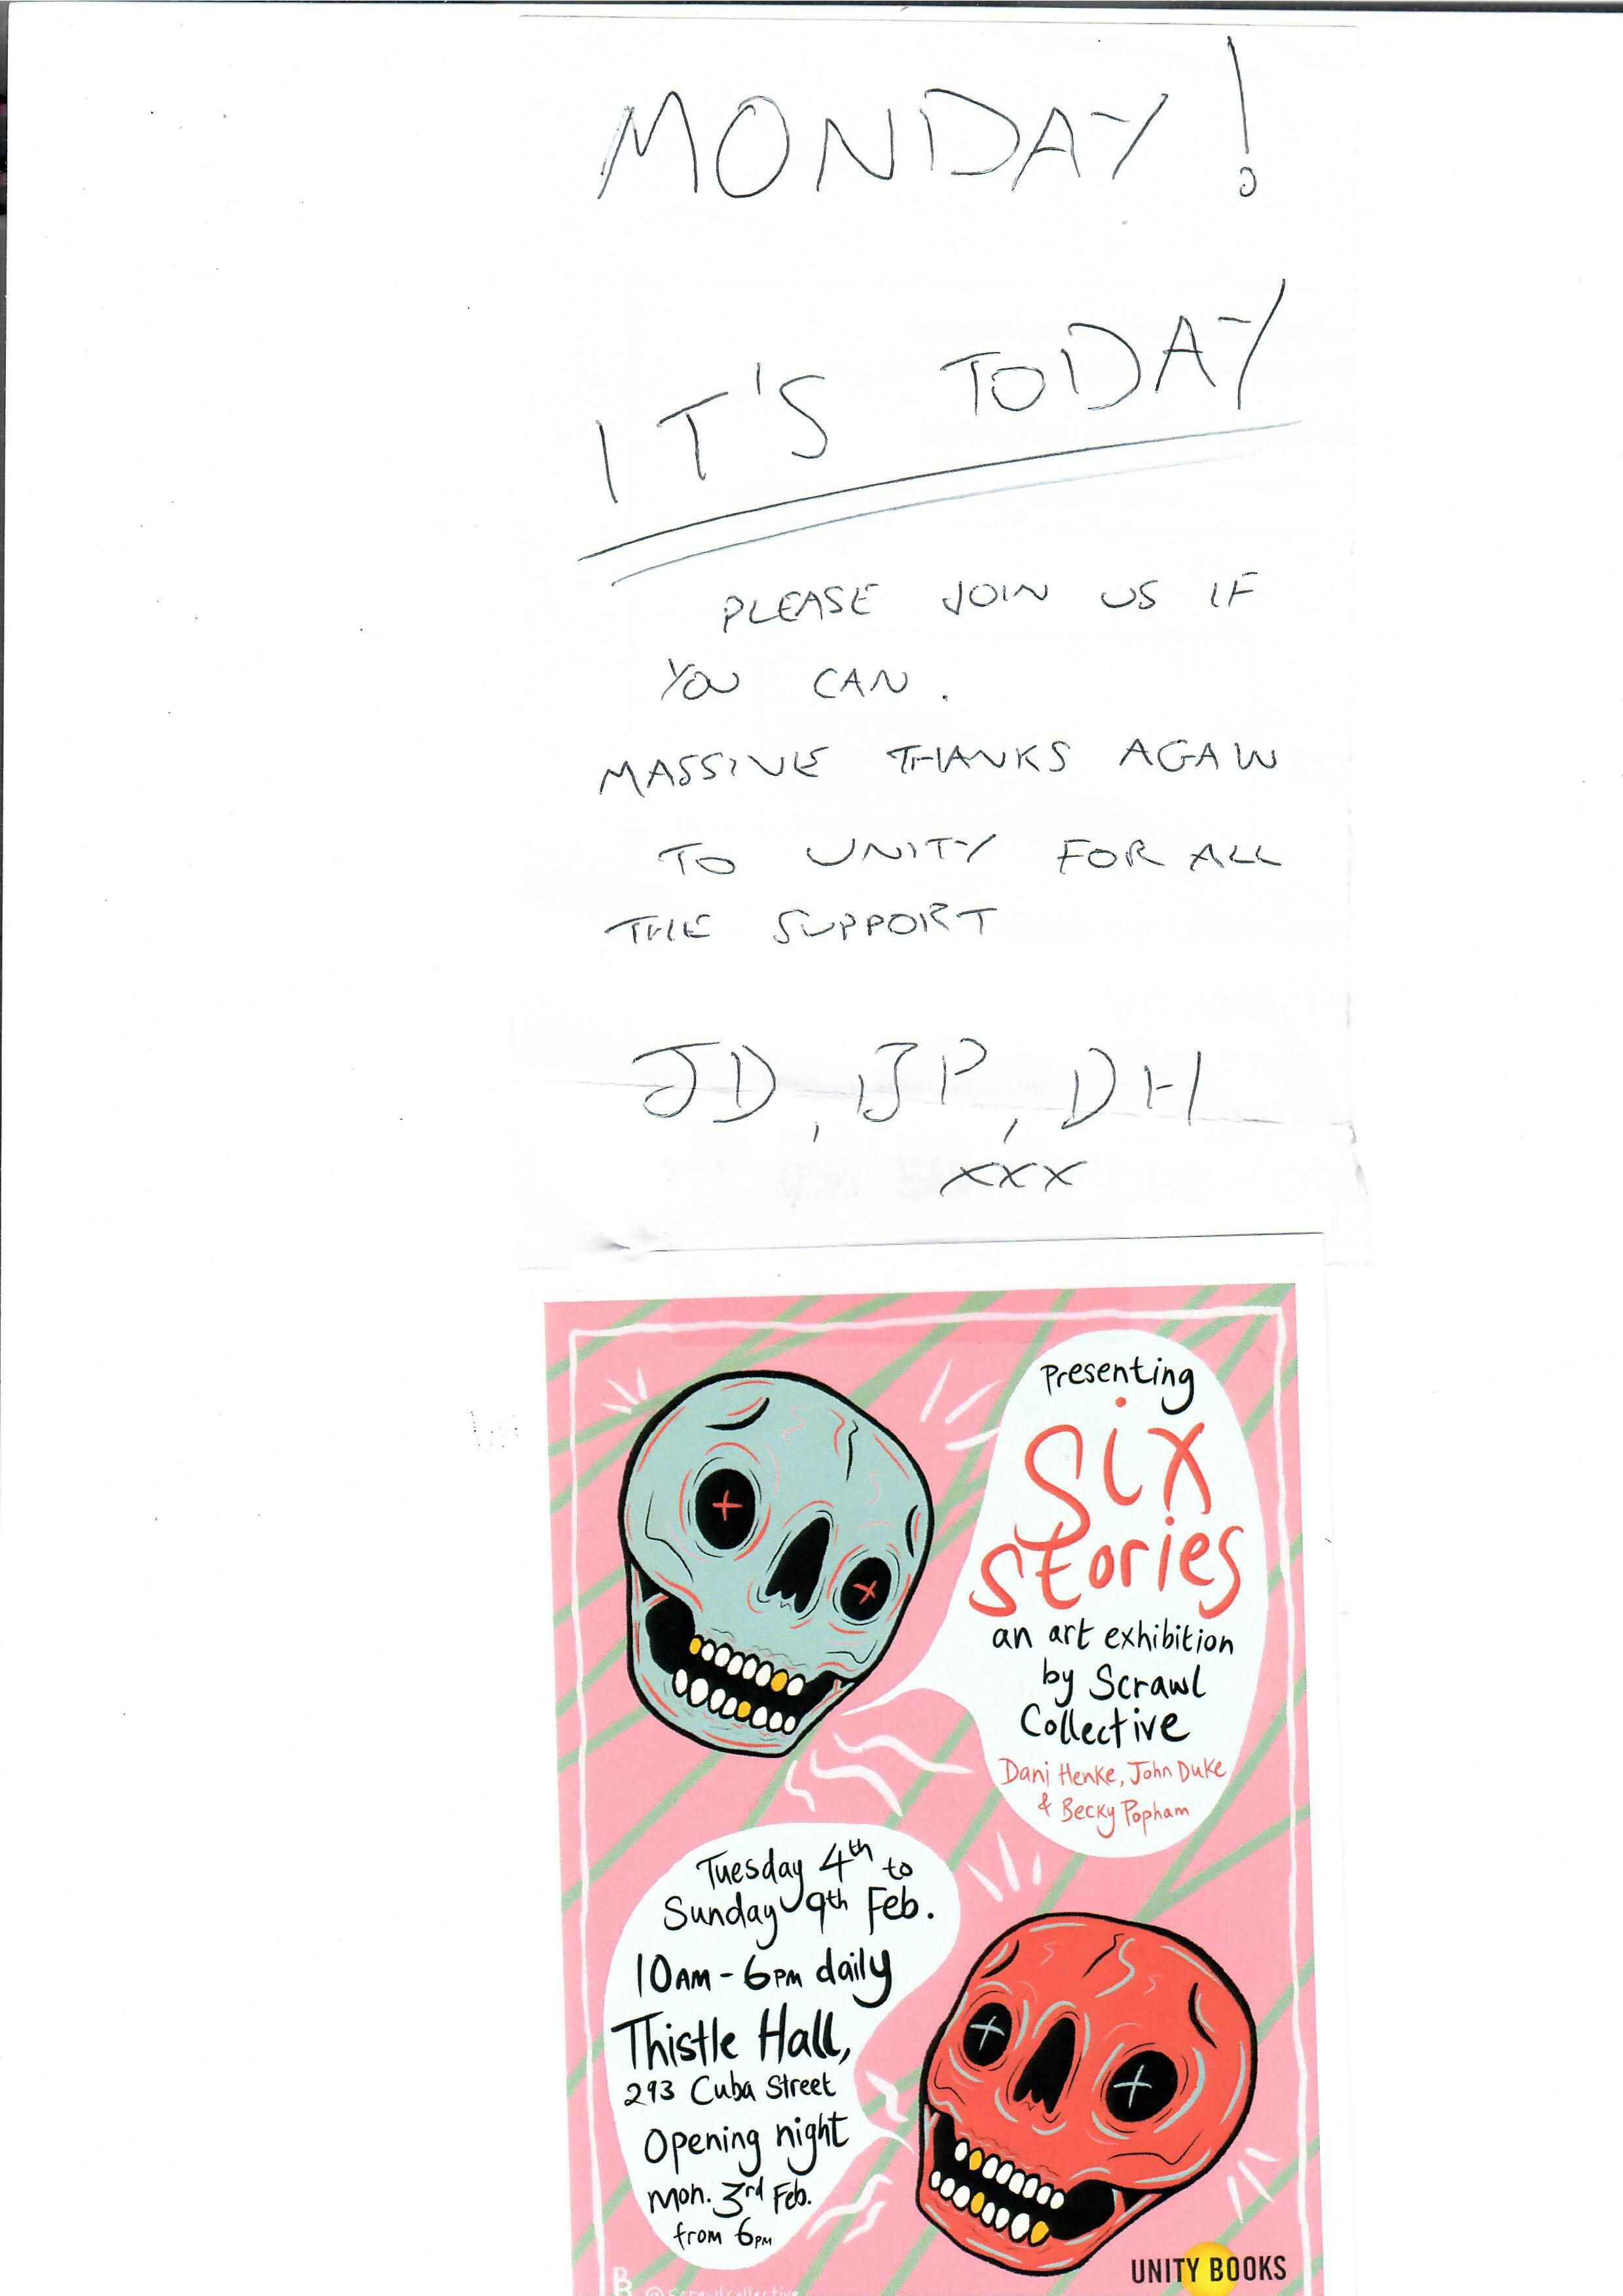 MONDAY!
IT'S TODAY
PLEASE JOIN US IF
YOU CAN.
MASSIVE THANKS AGAIN
TO UNITY FOR ALL
THE SUPPORT
JD, BP, DH
xxx
Presenting
Six
Stories
an art exhibition
by Scrawl
Collective
Dani Henke, John Duke
& Becky Popham
Tuesday 4th to
Sunday 9th Feb.
10AM-6PM daily
Thistle Hall,
293 Cuba Street
Opening night
Mon. 3rd Feb.
from 6PM
UNITY BOOKS
@scrawlcollective